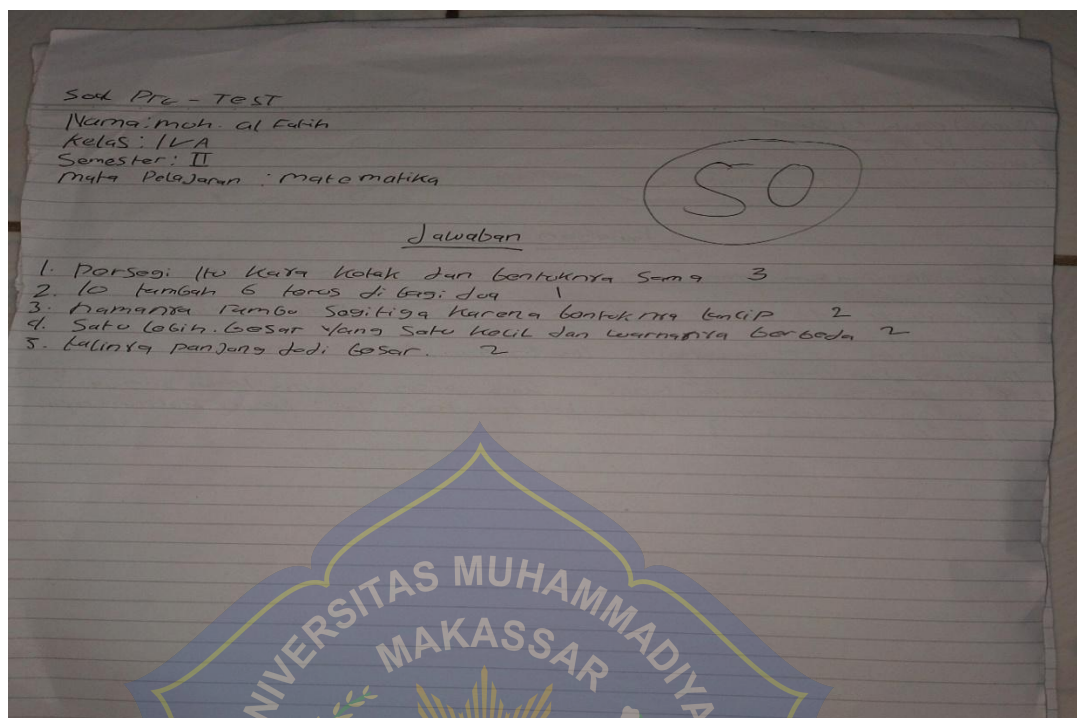 Soal Pre - Test
Nama: moh. al Fatih
Kelas: IV A
Semester: II
mata Pelajaran : matematika
50
Jawaban
1. Persegi Itu Kaya Kotak dan bentuknya Sama 3
2. 10 tambah 6 terus di bagi dua 1
3. namanya rambu Segitiga Karena bentuknya lancip 2
4. Satu lebih besar yang Satu Kecil dan warnanya berbeda 2
5. talinya panjang jadi besar. 2
UNIVERSITAS MUHAMMADIYA
MAKASSAR